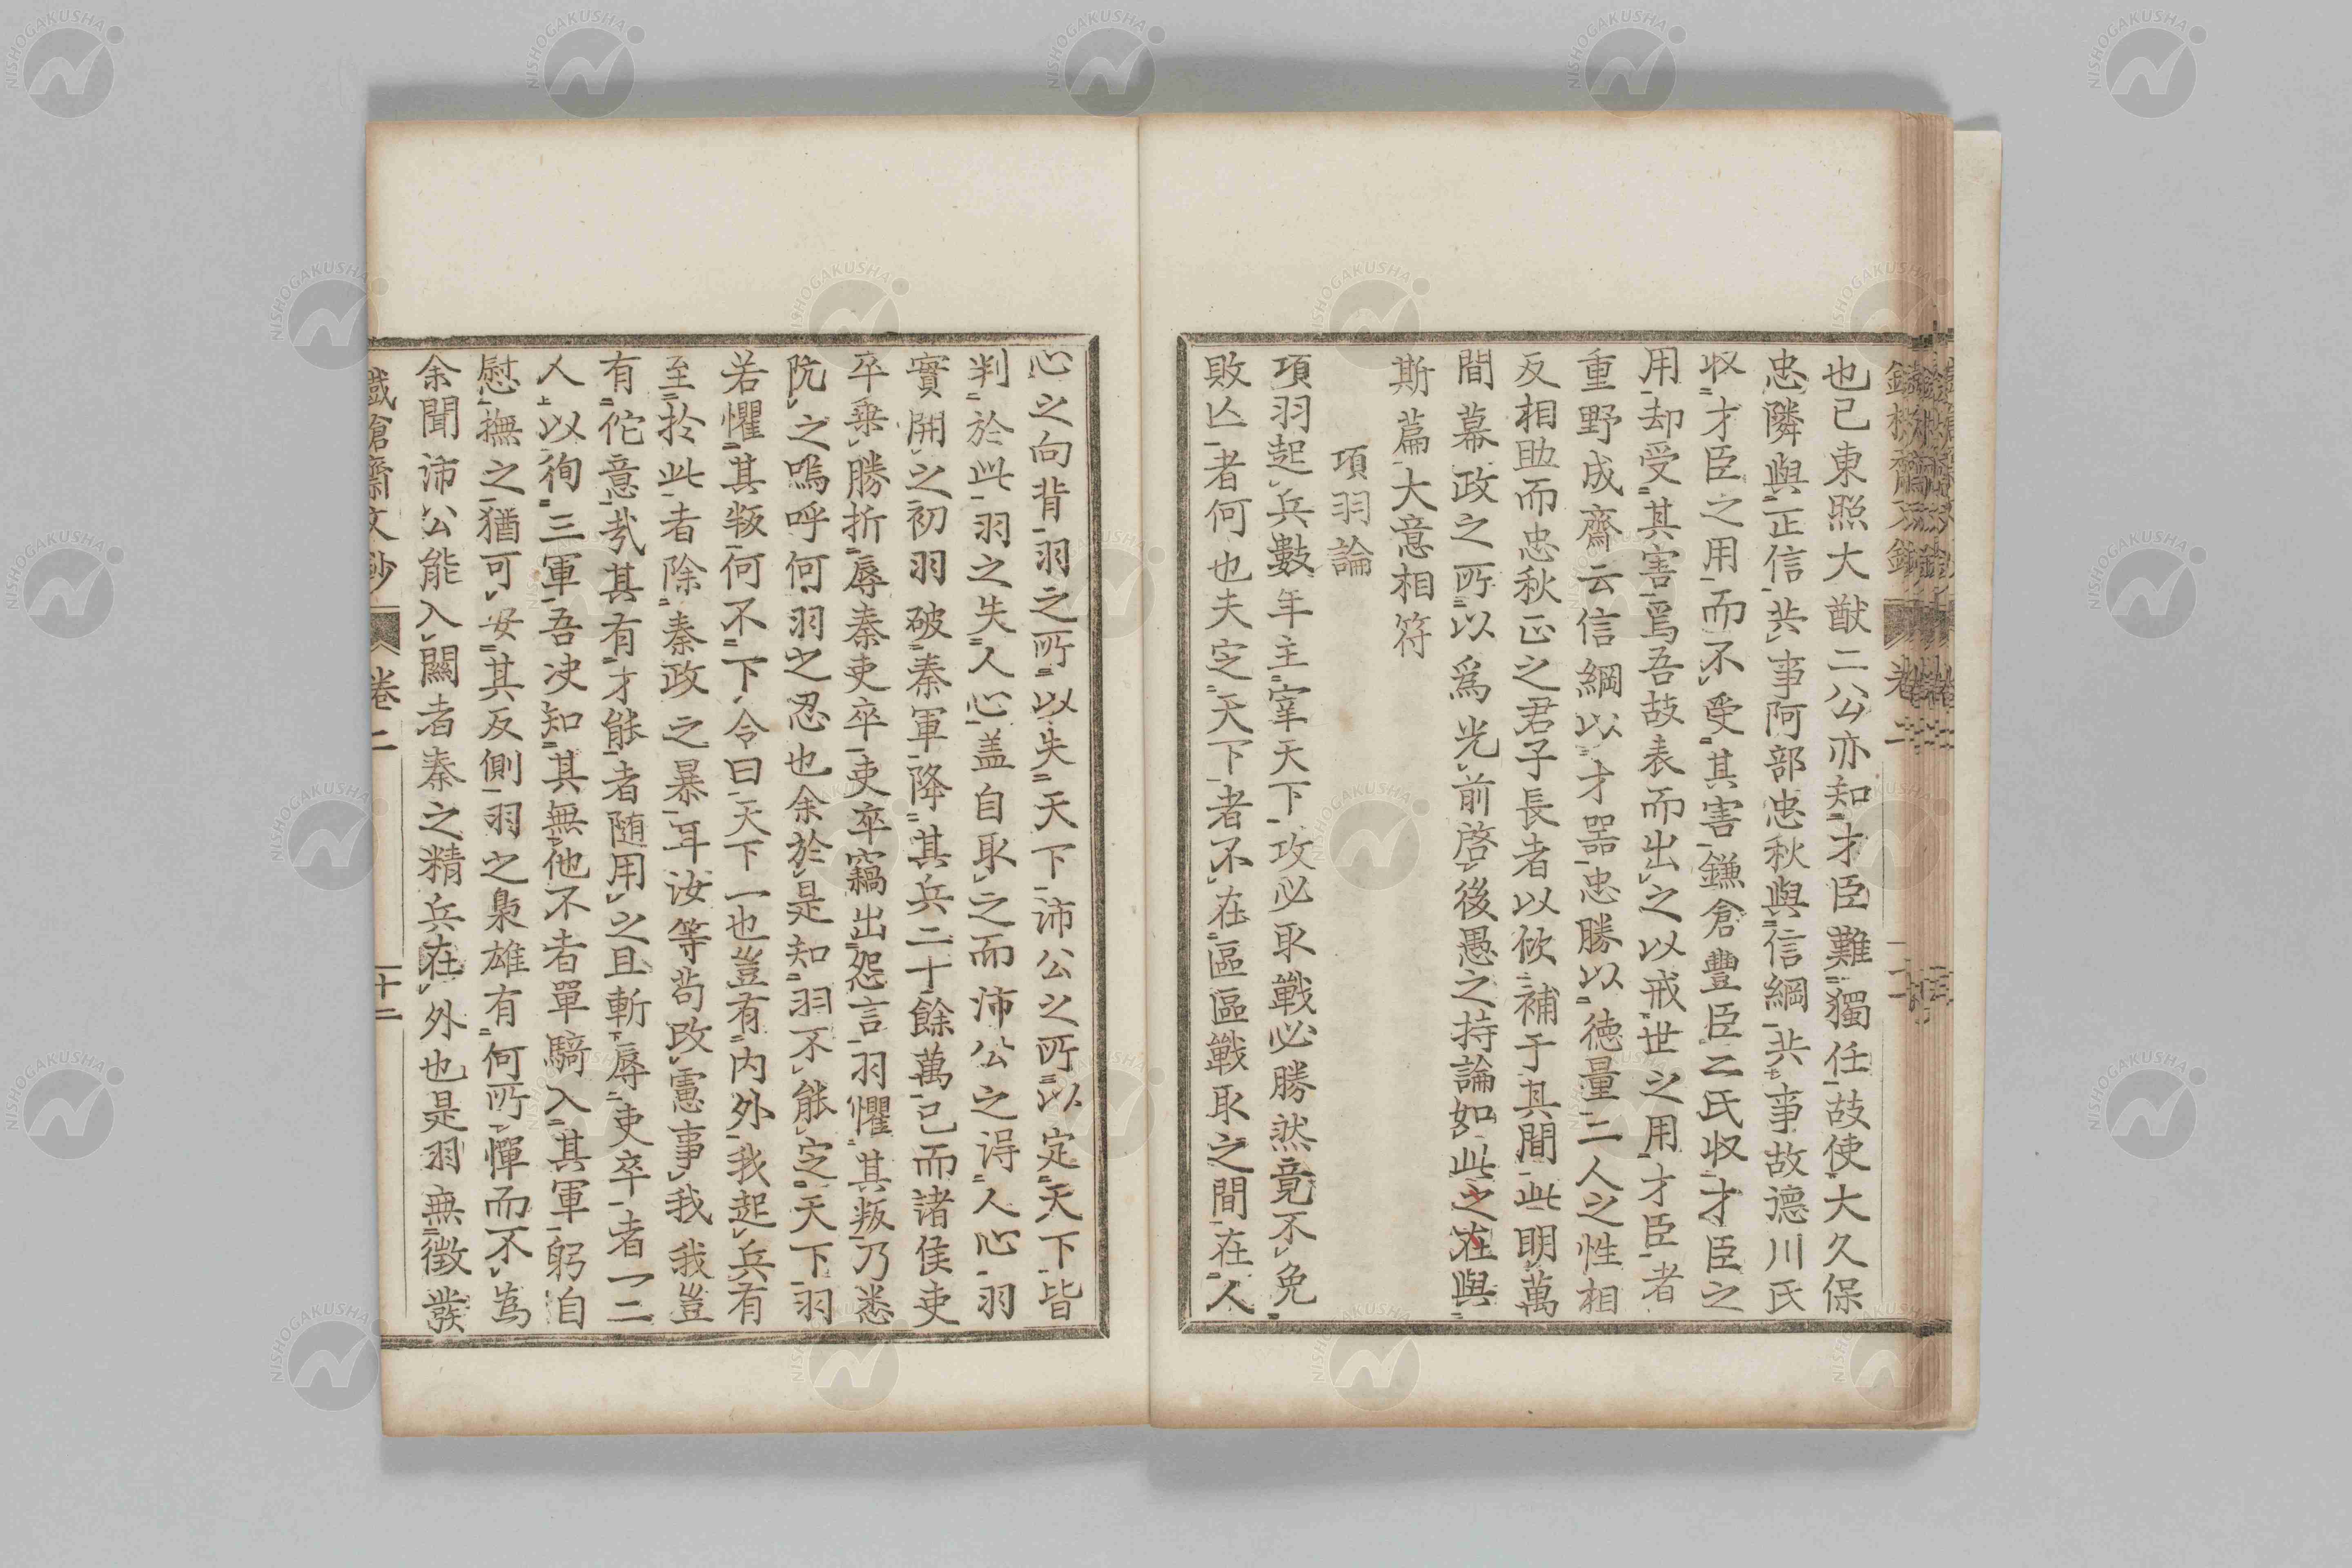 也已東照大猷二公亦知才臣難獨任故使大久保
忠隣與正信共事阿部忠秋與信綱共事故德川氏
收才臣之用而不受其害鎌倉豐臣二氏收才臣之
用却受其害焉吾故表而出之以戒世之用才臣者
重野成齋云信綱以才器忠勝以德量二人之性相
反相助而忠秋正之君子長者以佽補于其間此明萬
間幕政之所以爲光前啓後愚之持論如此之在與
斯篇大意相符
項羽論
項羽起兵數年主宰天下攻必取戰必勝然竟不免
敗亾者何也夫定天下者不在區區戰取之間在人
心之向背羽之所以失天下沛公之所以定天下皆
判於此羽之失人心盖自取之而沛公之得人心羽
實開之初羽破秦軍降其兵二十餘萬已而諸侯吏
卒乗勝折辱秦吏卒吏卒竊出怨言羽懼其叛乃悉
阬之嗚呼何羽之忍也余於是知羽不能定天下羽
若懼其叛何不下令曰天下一也豈有内外我起兵有
至於此者除秦政之暴耳汝等苟改慮事我我豈
有佗意哉其有才能者随用之且斬辱吏卒者一二
人以徇三軍吾决知其無他不者單騎入其軍躬自
慰撫之猶可安其反側羽之梟雄有何所憚而不爲
余聞沛公能入關者秦之精兵在外也是羽無徵發
鐵槍齋文鈔 卷二 十二